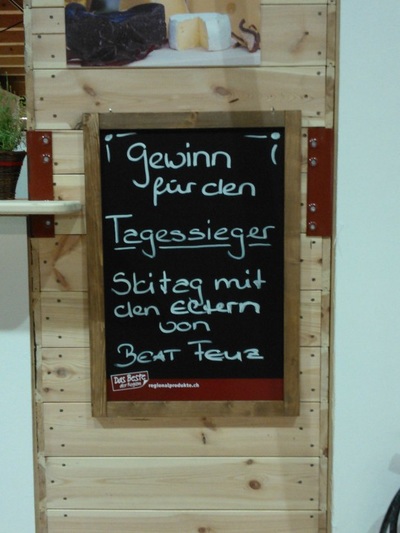 ¡ Gewinn !
für den
Tagessieger
Skitag mit
den Eltern
von
BEAT FEUZ
Das Beste
der Region
regionalprodukte.ch